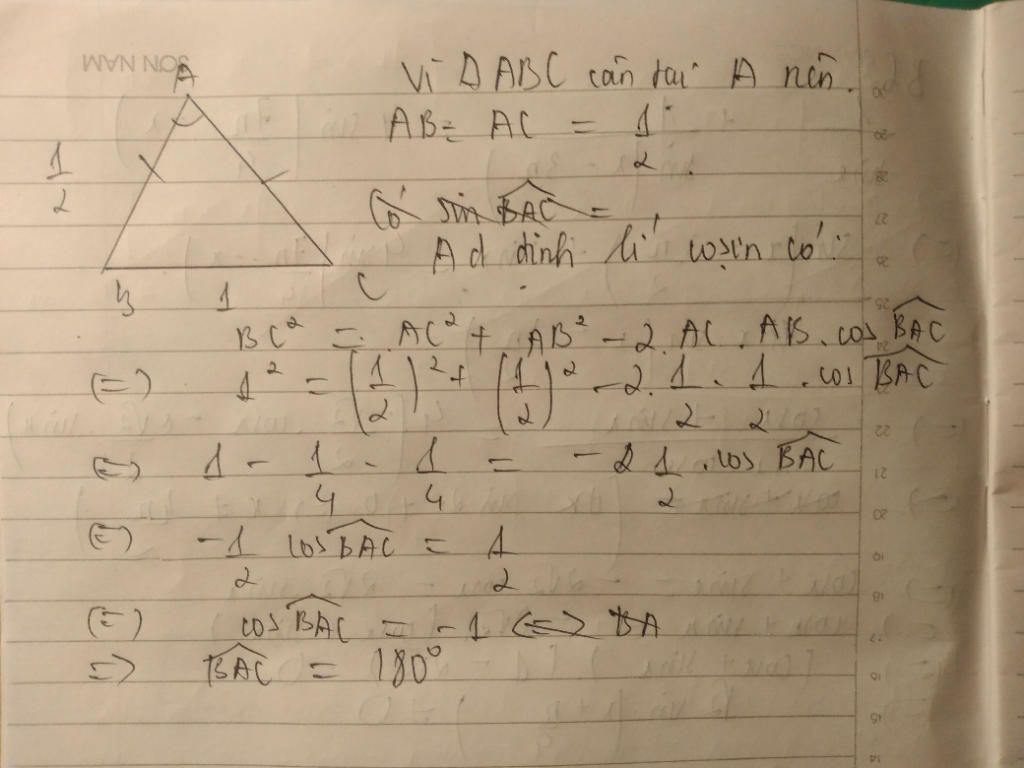 SƠN NAM
A
Vì Δ ABC cân tại A nên.
AB = AC = 1/2
1/2
Có sin BAC =
Ad định lí cosin có:
B 1 C
BC² = AC² + AB² - 2. AC . AB . cos BAC
(=) 1² = (1/2)² + (1/2)² - 2. 1/2 . 1/2 . cos BAC
(=) 1 - 1/4 - 1/4 = - 2 1/2 . cos BAC
(=) -1/2 cos BAC = 1/2
(=) cos BAC = -1 <=> BA
=> BAC = 180°